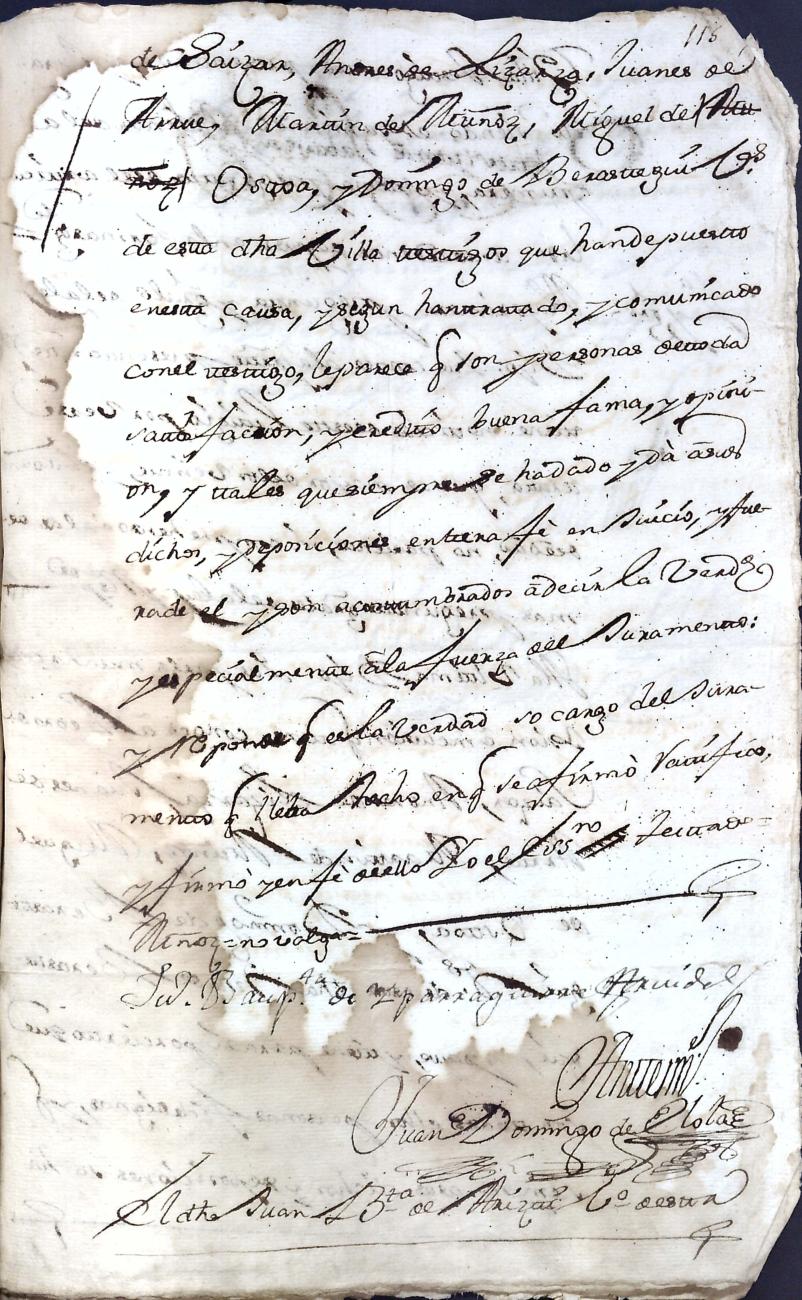 118
de Saizar, Andres de Lizarza, Juanes de
Arrue, Martin de Muñoz, Miguel de Mu
ñoz Ostoa, y Domingo de Berastegui Vºs
de esta dha Villa testigos que han depuesto
enesta causa, y segun hantratado, y comunicado
conel testigo, leparece q son personas detoda
satisfacion, y credito buena fama, y opini-
on, y tales quesiempre se hadado y dà asus
dichos, y deposiciones entera fè en Juicio, y fue
rade el y son acostumbrados adecir la Verdd
y especialmente àla fuerza del Juramento:
y Responde q es la Verdad so cargo del Jura-
mento q lleba hecho enq seafirmò Ratifico,
y firmò yenfè deello Yo el Essno Testado=
Muñoz= novalga=
Ju. Baup.ta de Yparraguirre
Antemi
Juan Domingo de Olotae
El dho Juan Bta de Arizti Vº deesta